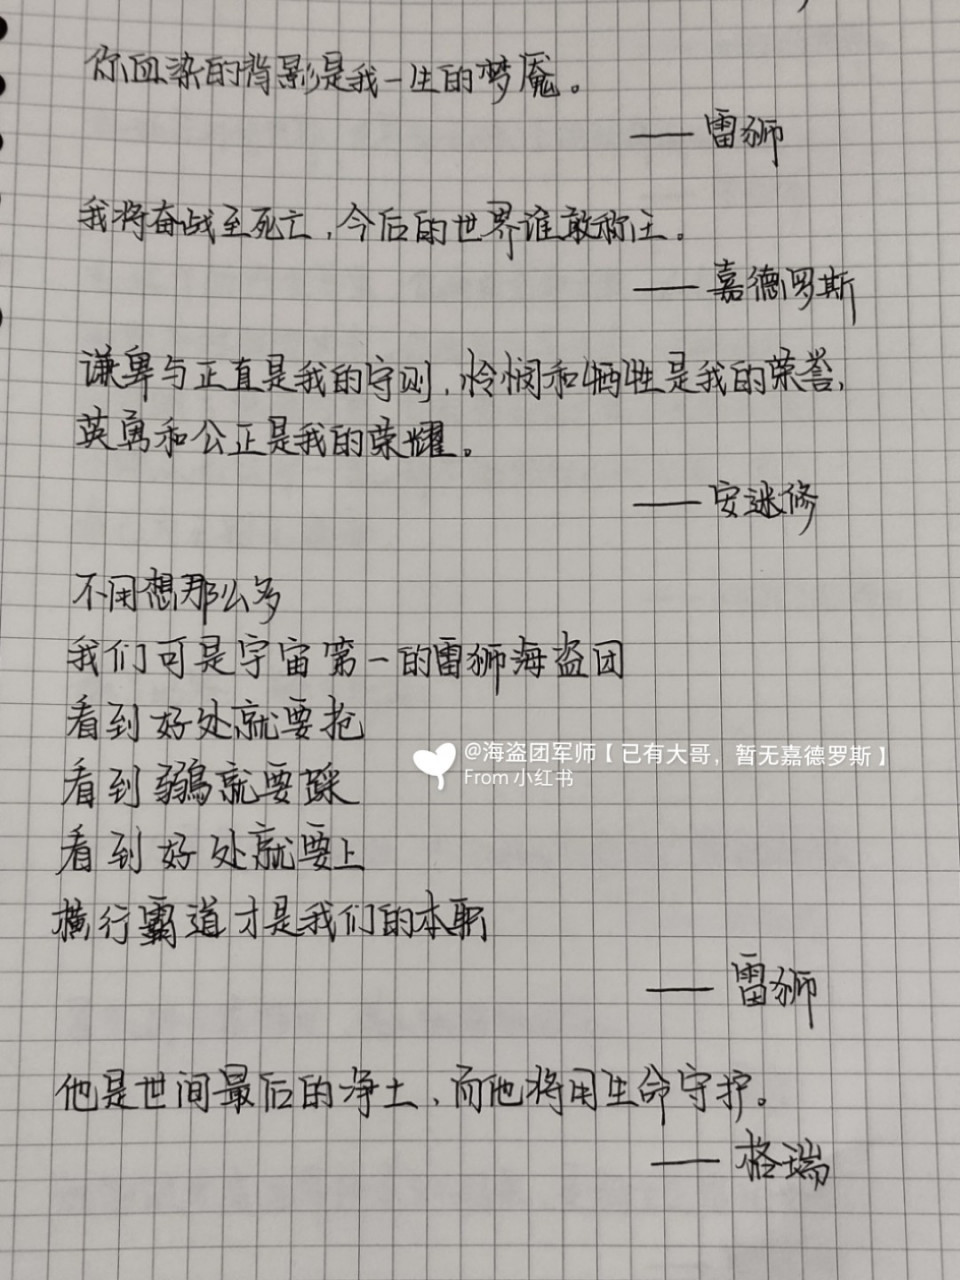 你血染的背影是我一生的梦魇。
——雷狮
我将奋战至死亡,今后的世界谁敢称王。
——嘉德罗斯
谦卑与正直是我的守则,怜悯和牺牲是我的荣誉,
英勇和公正是我的荣耀。
——安迷修
不用想那么多
我们可是宇宙第一的雷狮海盗团
看到好处就要抢
@海盗团军师【已有大哥,暂无嘉德罗斯】
From 小红书
看到弱鸡就要踩
看到好处就要上
横行霸道才是我们的本职
——雷狮
他是世间最后的净土,而他将用生命守护。
——格瑞